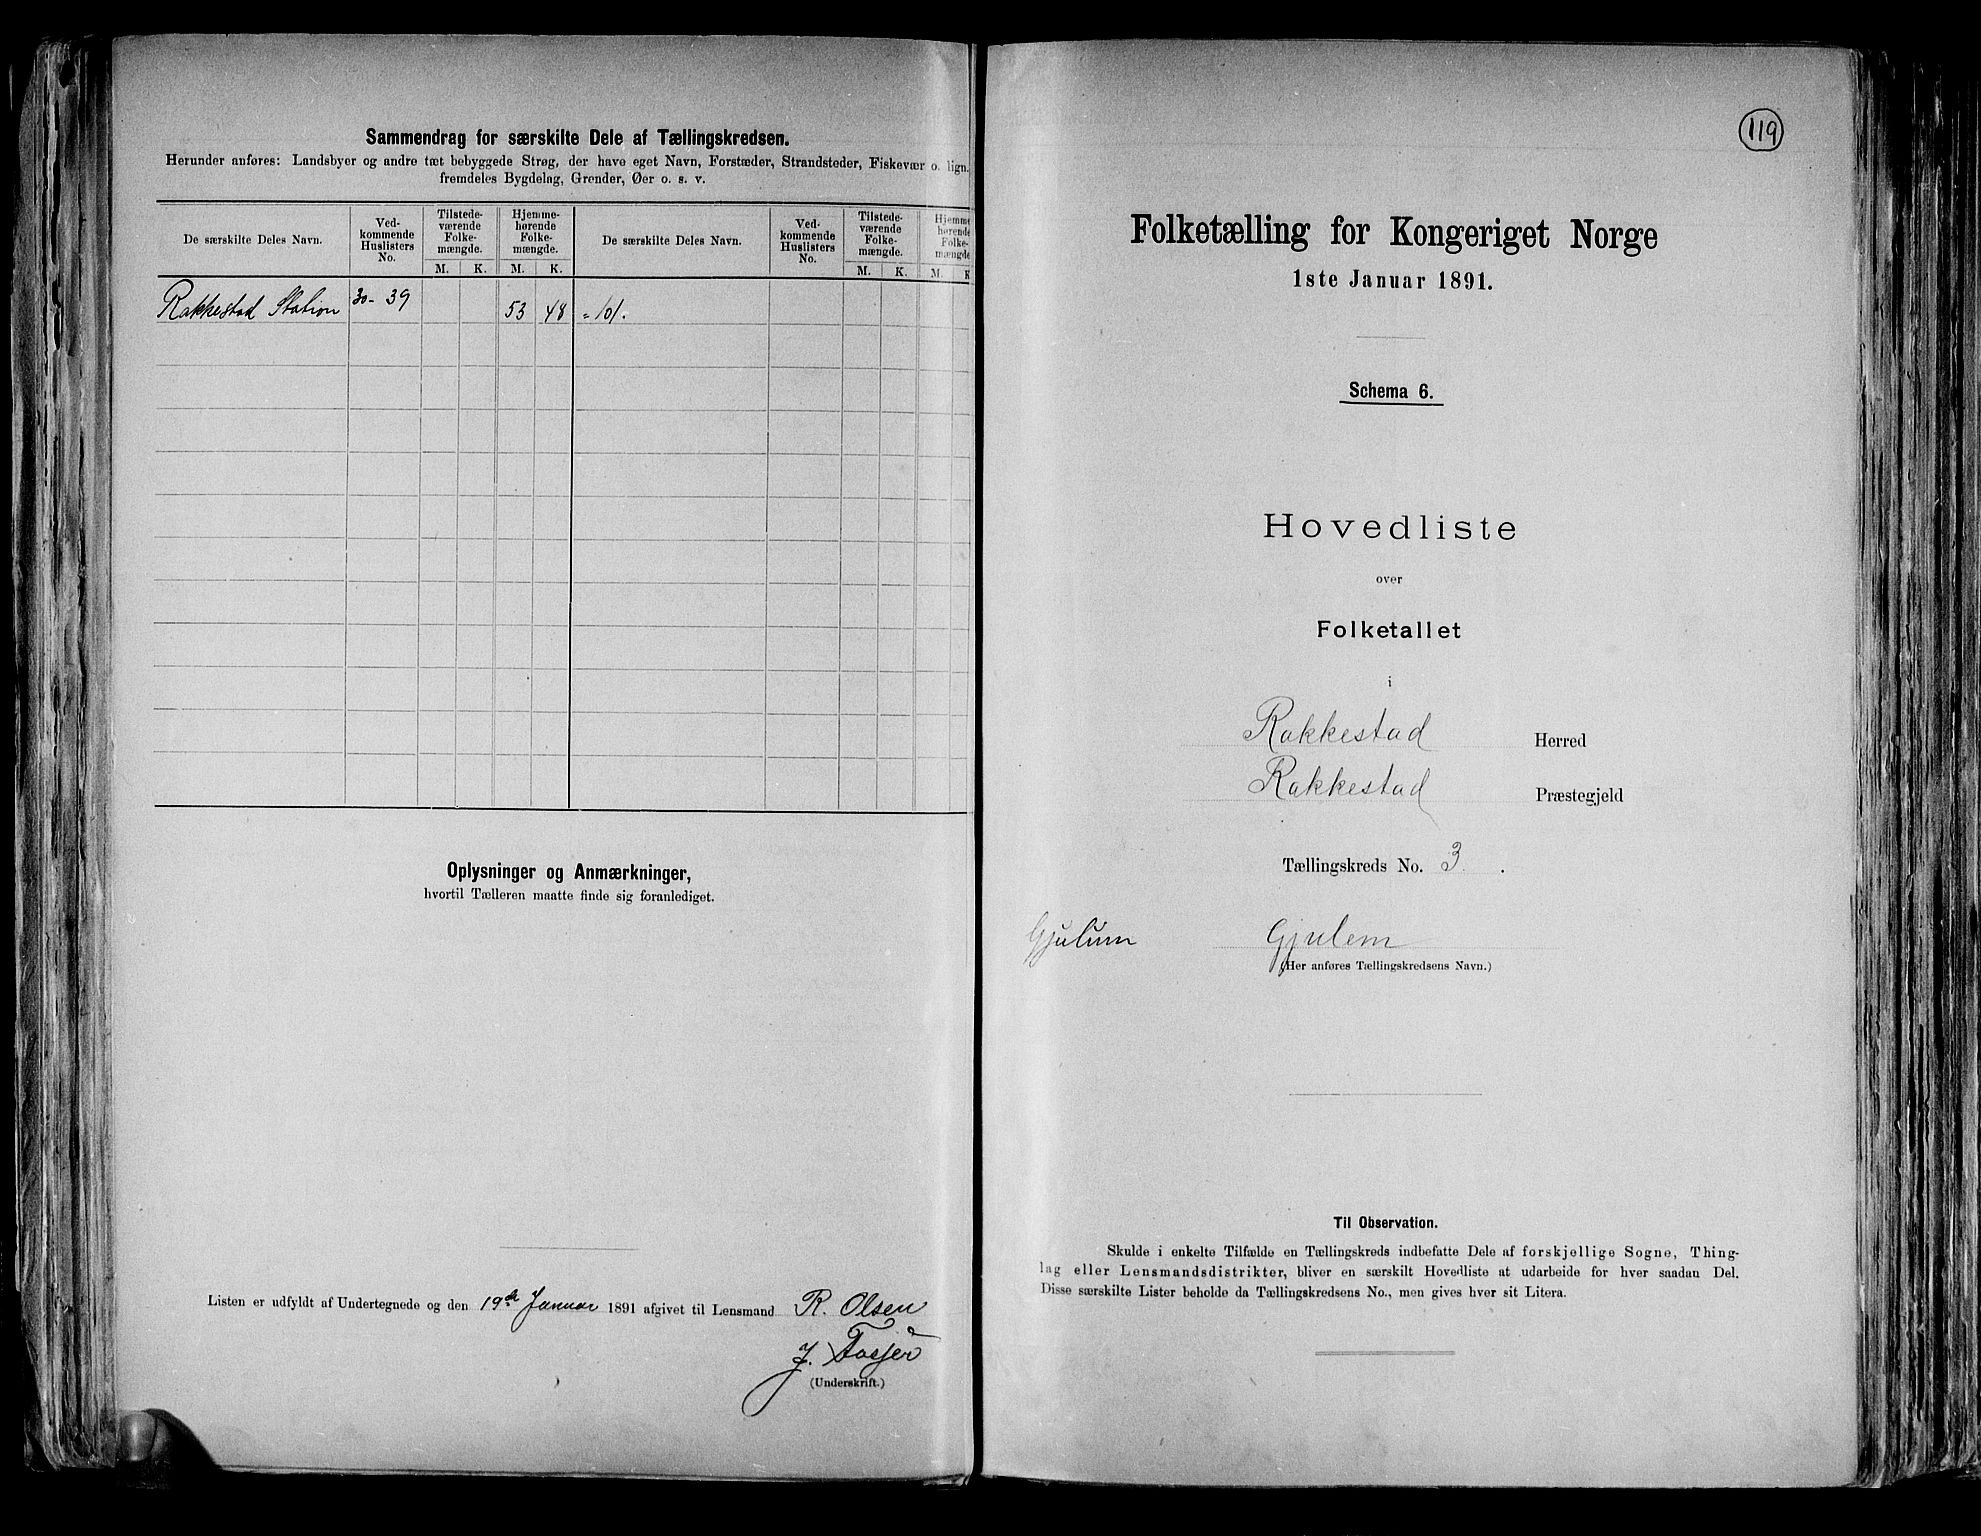 Sammendrag for særskilte Dele af Tællingskredsen.
Herunder anføres: Landsbyer og andre tæt bebyggede Strøg, der have eget Navn, Forstæder, Strandsteder, Fiskevær o. lign.
fremdeles Bygdelag, Grender, Øer o. s. v.
De særskilte Deles Navn.
Ved-
kommende
Huslisters
No.
Tilstede-
værende
Folke-
mængde.
Hjemme-
hørende
Folke-
mængde.
De særskilte Deles Navn.
Ved-
kommende
Huslisters
No.
Tilstede-
værende
Folke-
mængde.
Hjemme
hørende
Folke-
mængde
M. K. M. K. M. K. M. K
Rakkestad Station 30-39 53 48 = 101.
Oplysninger og Anmærkninger,
hvortil Tælleren maatte finde sig foranlediget.
Listen er udfyldt af Undertegnede og den 19de Januar 1891 afgivet til Lensmand R. Olsen
(Underskrift.)
119
Folketælling for Kongeriget Norge
1ste Januar 1891.
Schema 6.
Hovedliste
over
Folketallet
i
Rakkestad Herred
Rakkestad Præstegjeld
Tællingskreds No. 3.
Gjulum Gjulem
(Her anføres Tællingskredsens Navn.)
Til Observation.
Skulde i enkelte Tilfælde en Tællingskreds indbefatte Dele af forskjellige Sogne, Thing-
lag eller Lensmandsdistrikter, bliver en særskilt Hovedliste at udarbeide for hver saadan Del.
Disse særskilte Lister beholde da Tællingskredsens No., men gives hver sit Litera.